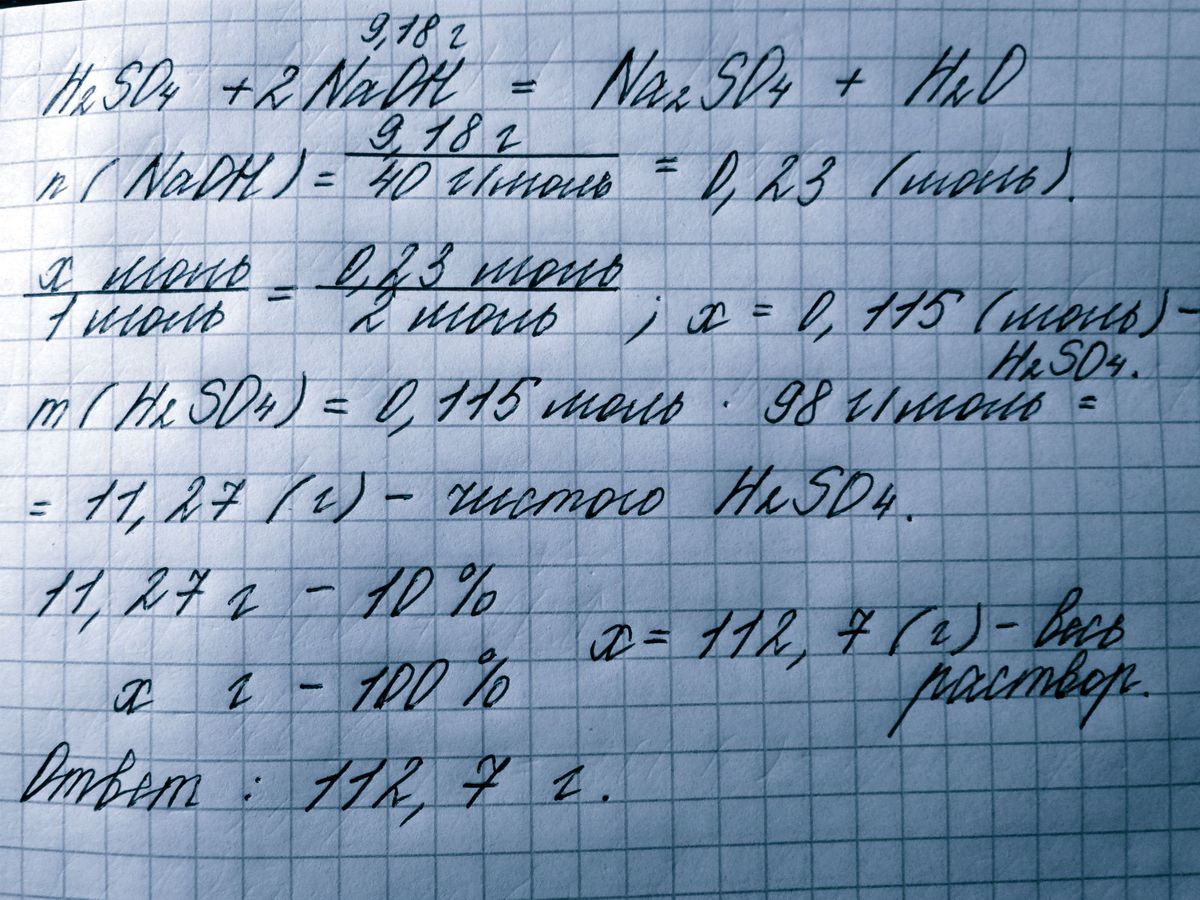 9,18 г
H₂SO₄ + 2 NaOH = Na₂SO₄ + H₂O
n ( NaOH ) = 9,18 г / 40 г/моль = 0,23 (моль).
x моль / 1 моль = 0,23 моль / 2 моль ; x = 0,115 (моль) –
H₂SO₄.
m ( H₂SO₄ ) = 0,115 моль · 98 г/моль =
= 11,27 (г) – чистого H₂SO₄.
11,27 г – 10 %
x г – 100 %
x = 112,7 (г) – весь
раствор.
Ответ : 112,7 г.